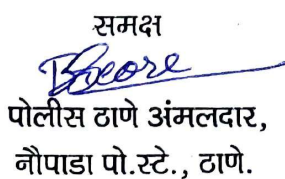 समक्ष
पोलीस ठाणे अंमलदार,
नौपाडा पो.स्टे., ठाणे.